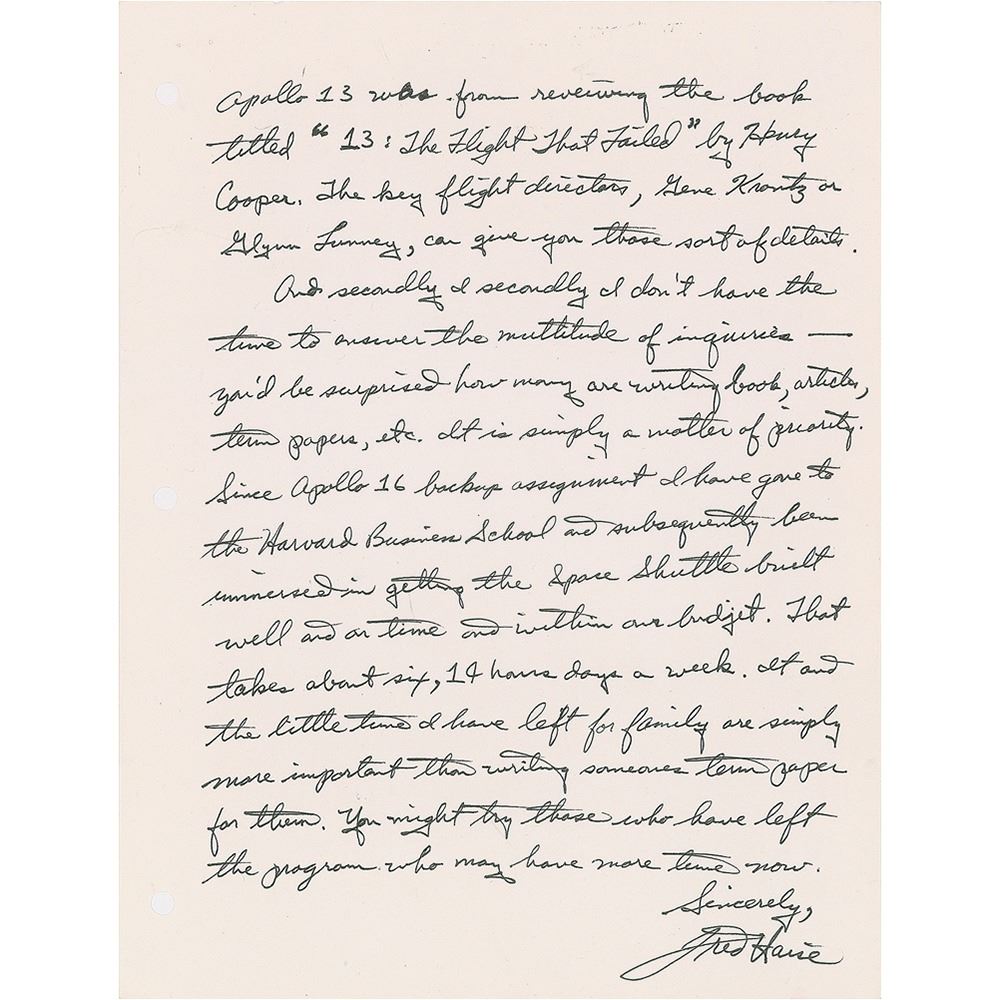 Apollo 13 was from reveiwing the book
titled "13: The Flight That Failed" by Henry
Cooper. The key flight directors, Gene Krantz or
Glynn Lunney, can give you those sort of details.
And secondly I secondly I don't have the
time to answer the multitude of inquiries —
you'd be surprised how many are writing book, articles,
term papers, etc. It is simply a matter of priority.
Since Apollo 16 backup assignment I have gone to
the Harvard Business School and subsequently been
immersed in getting the Space Shuttle built
well and on time and within our budjet. That
takes about six, 14 hours days a week. It and
the little time I have left for family are simply
more important than writing someones term paper
for them. You might try those who have left
the program who may have more time now.
Sincerely,
Fred Haise